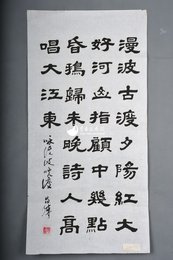 漫波古渡夕陽紅大
好河山指顧中幾點
昏鴉歸未晚詩人高
唱大江東